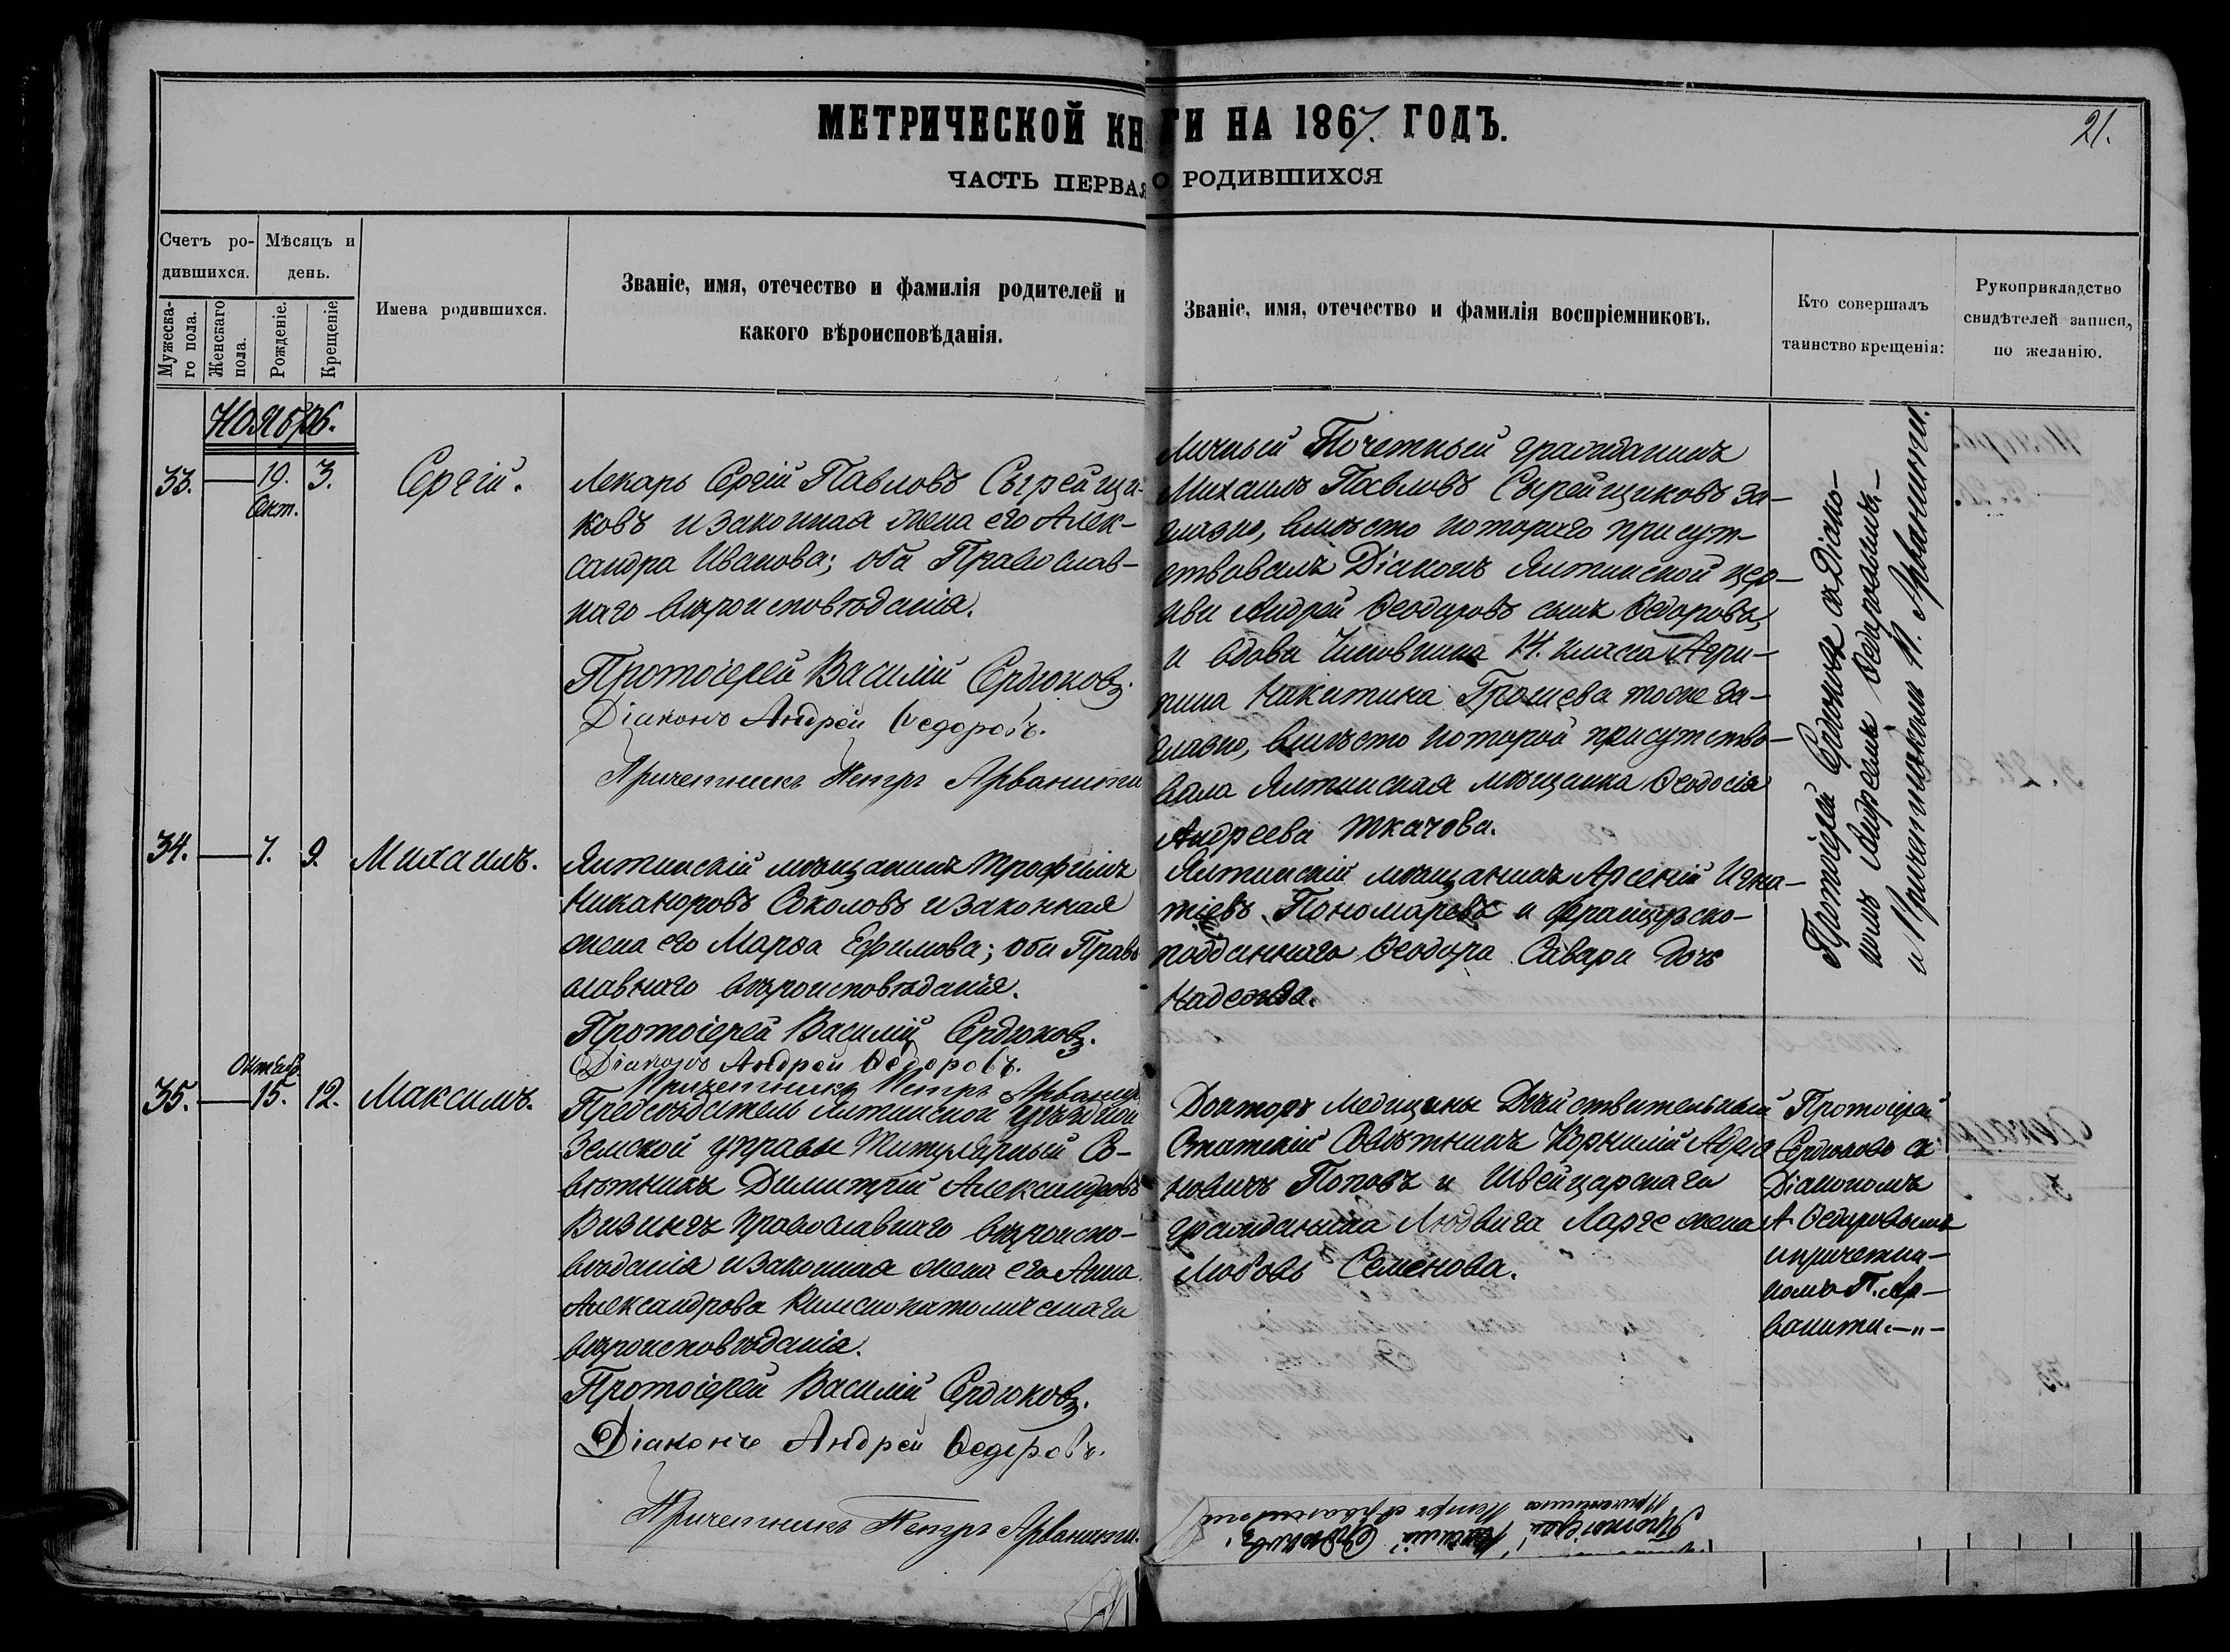 МЕТРИЧЕСКОЙ КНИГИ НА 1867. ГОДЪ.
21.
ЧАСТЬ ПЕРВАЯ О РОДИВШИХСЯ
Счетъ ро-
дившихся.
Мѣсяцъ и
день.
Мужеска-
го пола.
Женскаго
пола.
Рожденіе.
Крещеніе
Имена родившихся.
Званіе, имя, отечество и фамилія родителей и
какого вѣроисповѣданія.
Званіе, имя, отечество и фамилія воспріемниковъ.
Кто совершалъ
таинство крещенія:
Рукоприкладство
свидѣтелей записи,
по желанію.
Ноябрь.
33. — 19. 3.
Окт.
Сергій.
Лекарь Сергій Павловъ Сырейщи-
ковъ и законная жена его Алек-
сандра Иванова; оба Православ-
наго вѣроисповѣданія.
Протоіерей Василій Сердюковъ.
Діаконъ Андрей Ѳедоровъ.
Причетникъ Петръ Арванити
Личный Почетный гражданинъ
Михаилъ Павловъ Сырейщиковъ за-
глазно, вмѣсто котораго присут-
ствовалъ Діаконъ Ялтинской цер-
кви Андрей Ѳеодоровъ сынъ Ѳедоровъ,
и вдова Чиновника 14. класса Агри-
пина Никитина Грошева тоже за-
глазно, вмѣсто которой присутство-
вала Ялтинская мѣщанка Ѳеодосія
Андреева Ткачова.
Протоіерей Сердюковъ съ Діако-
номъ Андреемъ Ѳедоровымъ-
и Причетникомъ П. Арванити.
34. — 7. 9
Михаилъ.
Ялтинскій мѣщанинъ Трофимъ
Никаноровъ Соколовъ и законная
жена его Марѳа Ефимова; оба Право
славнаго вѣроисповѣданія.
Протоіерей Василій Сердюковъ.
Діаконъ Андрей Ѳедоровъ.
Причетникъ Петръ Арванити
Ялтинскій мѣщанинъ Арсеній Игна-
тіевъ Пономаревъ и французско-
подданнаго Ѳеодора Савари дочь
Надежда.
Октяб.
35. — 15. 12.
Максимъ.
Предсѣдатель Ялтинской уѣздной
Земской управы Титулярный Со-
вѣтникъ Димитрій Александровъ
Визингъ православнаго вѣроиспо-
вѣданія и законная жена его Анна
Александрова Римскокатолическаго
вѣроисповѣданія.
Протоіерей Василій Сердюковъ.
Діаконъ Андрей Ѳедоровъ.
Причетникъ Петръ Арванити.
Докторъ Медицины Дѣйствительный
Статскій Совѣтникъ Корнилій Адріа
новичъ Поповъ и Швейцарскаго
гражданина Людвига Ларге жена
Любовь Семенова.
Протоіерей
Сердюковъ съ
Діакономъ
А Ѳедоровымъ
и причетни-
комъ П. Ар-
ванити.—„—
Протоіерей Василій Сердюковъ.
Причетникъ Петръ Арванити